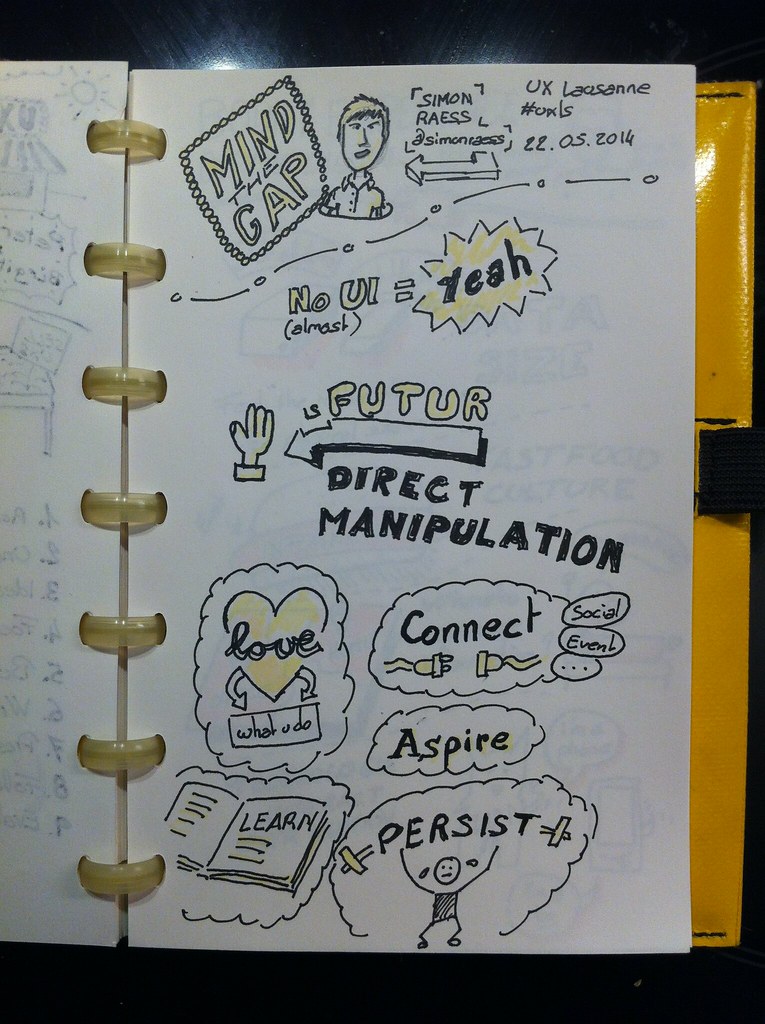 MIND
THE
GAP
SIMON
RAESS
@simonraess
UX Lausanne
#uxls
22.05.2014
No UI = Yeah
(almost)
is FUTUR
DIRECT
MANIPULATION
love
what u do
Connect
Social
Event
...
Aspire
LEARN
PERSIST
1.
2.
3.
4.
5.
6.
7.
8.
9.
FASTFOOD
CULTURE